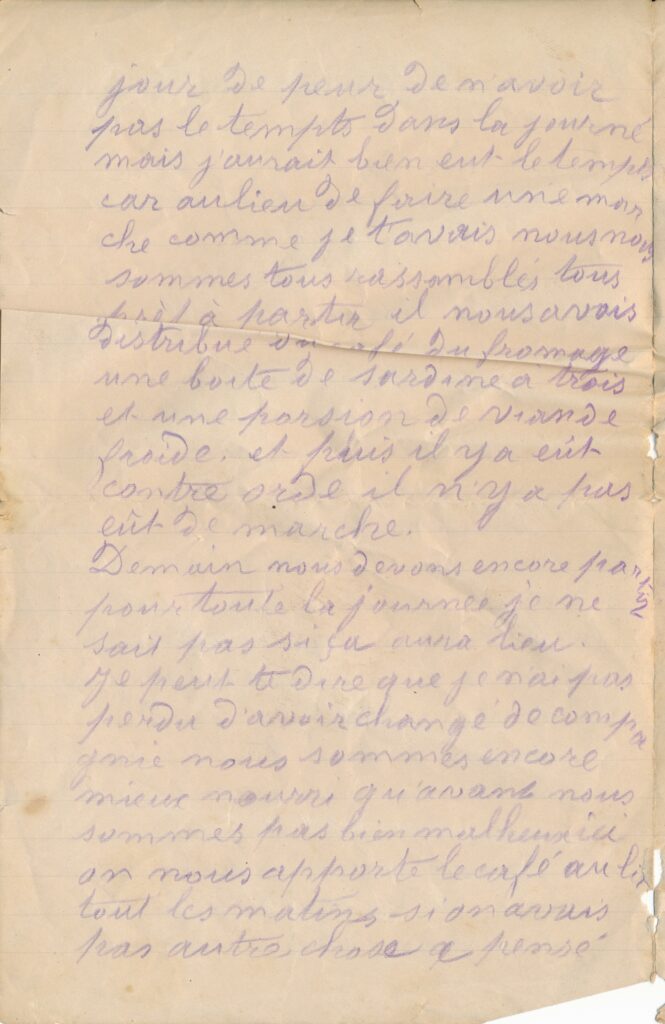 jour de peur de n'avoir
pas le tempts dans la journé
mais j'aurait bien eut le tempts
car au lieu de faire une mar
che comme je t'avais nous nous
sommes tous rassemblés tous
prèt à partir il nous avois
distribué du café du fromage
une boite de sardine a trois
et une porsion de viande
froide. et puis il y a eût
contre orde il n'y a pas
eût de marche.
Demain nous devons encore partir
pour toute la journée je ne
sait pas si ça aura lieu.
Je peut te dire que je n'ai pas
perdu d'avoir changé de compa
gnie nous sommes encore
mieux nourri qu'avant nous
sommes pas bien malheux ici
on nous apporte le café au lit
tout les matins si on avais
pas autre chose a pensé